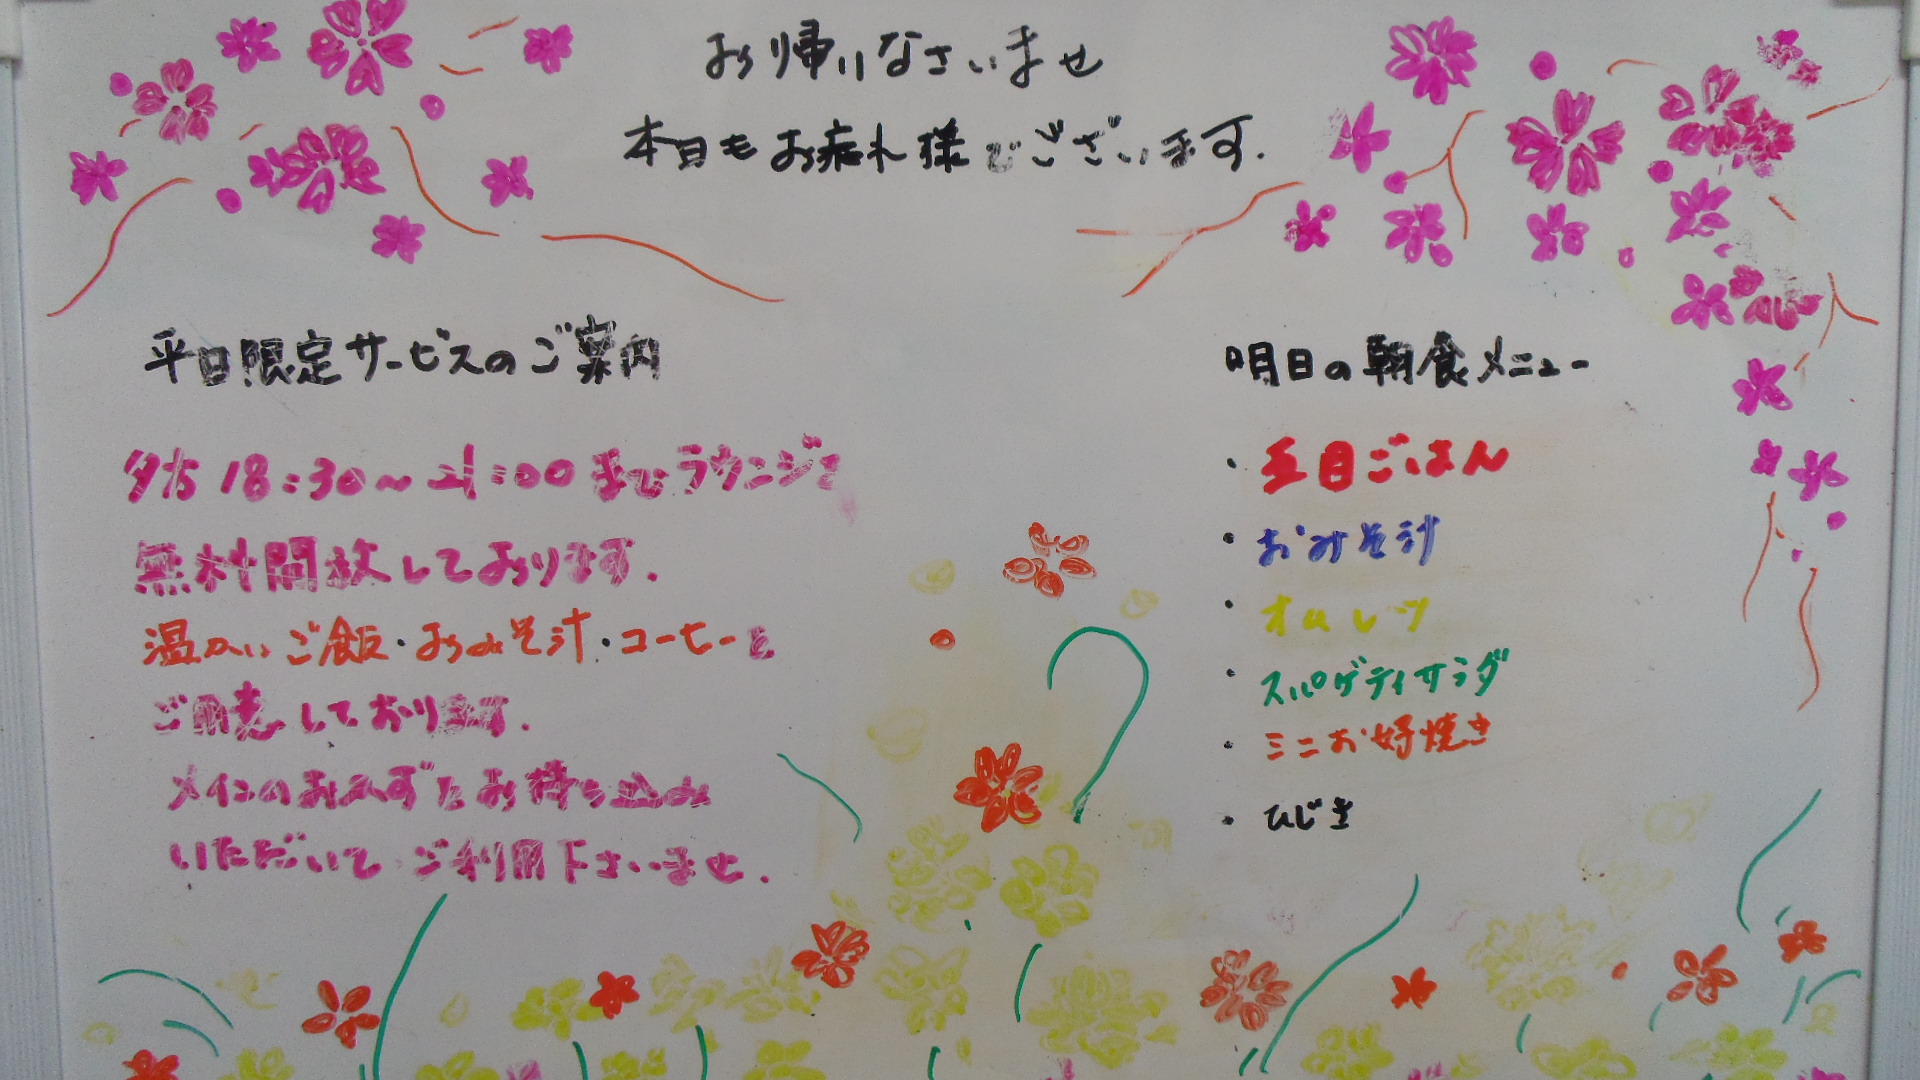 お帰りなさいませ
本日もお疲れ様でございます.
平日限定サービスのご案内
夕方 18:30~21:00までラウンジを
無料開放しております.
温かいご飯・おみそ汁・コーヒーを
ご用意しております.
メインのおかずをお持ち込み
いただいて ご利用下さいませ.
明日の朝食メニュー
・五目ごはん
・おみそ汁
・オムレツ
・スパゲティサラダ
・ミニお好焼き
・ひじき